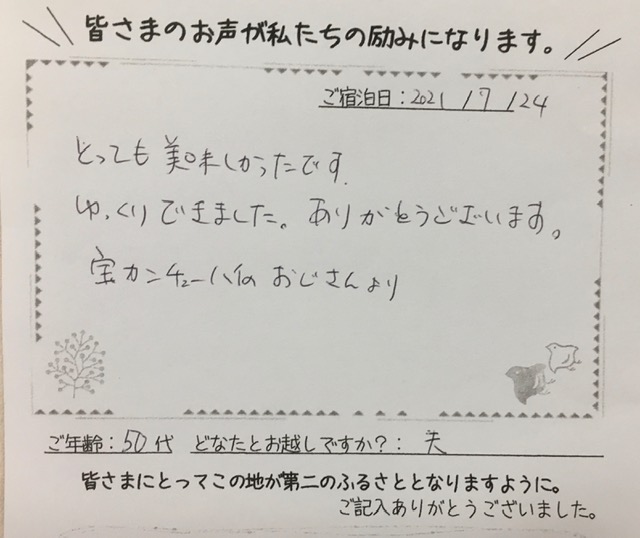 皆さまのお声が私たちの励みになります。
ご宿泊日:2021/7/24
とっても美味しかったです.
ゆっくりできました。ありがとうございます。
宝カンチューハイのおじさんより
ご年齢:50代 どなたとお越しですか?:夫
皆さまにとってこの地が第二のふるさととなりますように。
ご記入ありがとうございました。